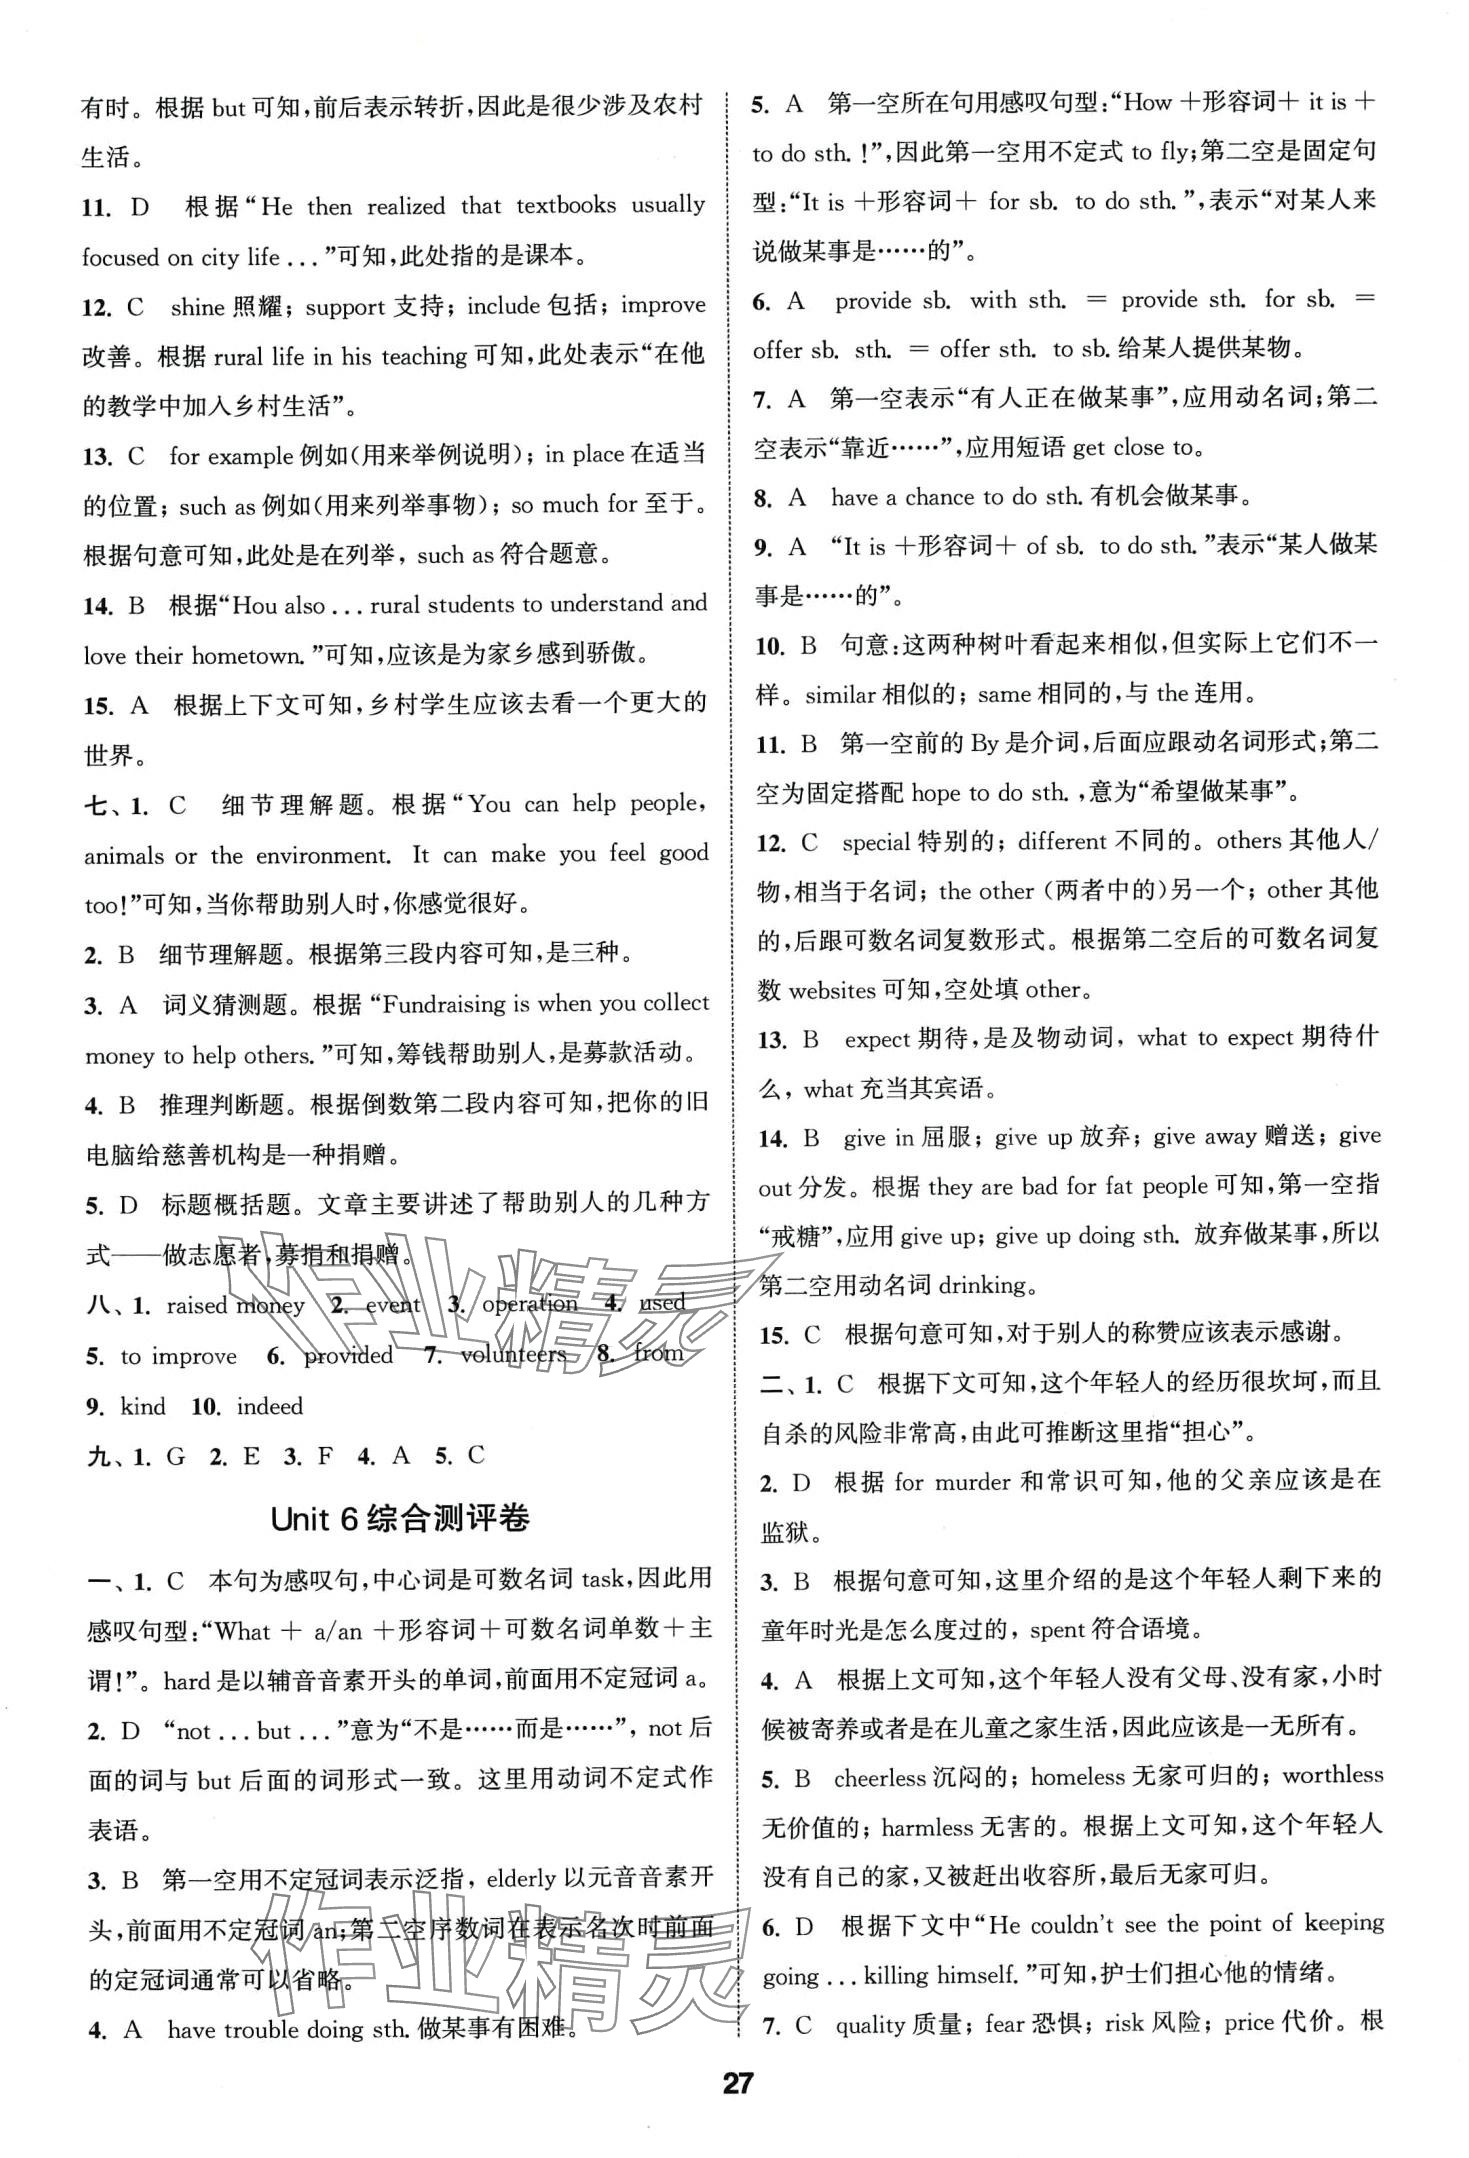 有时。根据 but 可知,前后表示转折,因此是很少涉及农村
生活。
11. D 根据“He then realized that textbooks usually
focused on city life ...”可知,此处指的是课本。
12. C shine 照耀; support 支持; include 包括; improve
改善。根据 rural life in his teaching 可知,此处表示“在他
的教学中加入乡村生活”。
13. C for example 例如(用来举例说明); in place 在适当
的位置; such as 例如(用来列举事物); so much for 至于。
根据句意可知,此处是在列举, such as 符合题意。
14. B 根据“Hou also ... rural students to understand and
love their hometown.”可知,应该是为家乡感到骄傲。
15. A 根据上下文可知,乡村学生应该去看一个更大的
世界。
七、1. C 细节理解题。根据“You can help people,
animals or the environment. It can make you feel good
too!”可知,当你帮助别人时,你感觉很好。
2. B 细节理解题。根据第三段内容可知,是三种。
3. A 词义猜测题。根据 “Fundraising is when you collect
money to help others.”可知,筹钱帮助别人,是募款活动。
4. B 推理判断题。根据倒数第二段内容可知,把你的旧
电脑给慈善机构是一种捐赠。
5. D 标题概括题。文章主要讲述了帮助别人的几种方
式——做志愿者,募捐和捐赠。
八、1. raised money 2. event 3. operation 4. used
5. to improve 6. provided 7. volunteers 8. from
9. kind 10. indeed
九、1. G 2. E 3. F 4. A 5. C
Unit 6 综合测评卷
一、1. C 本句为感叹句,中心词是可数名词 task,因此用
感叹句型:“What + a/an +形容词+可数名词单数+主
谓!”。hard 是以辅音音素开头的单词,前面用不定冠词 a。
2. D “not ... but ...”意为“不是……而是……”, not 后
面的词与 but 后面的词形式一致。这里用动词不定式作
表语。
3. B 第一空用不定冠词表示泛指, elderly 以元音音素开
头,前面用不定冠词 an;第二空序数词在表示名次时前面
的定冠词通常可以省略。
4. A have trouble doing sth. 做某事有困难。
5. A 第一空所在句用感叹句型:“How +形容词+ it is +
to do sth. !”,因此第一空用不定式 to fly;第二空是固定句
型:“It is +形容词+ for sb. to do sth.”,表示“对某人来
说做某事是……的”。
6. A provide sb. with sth. = provide sth. for sb. =
offer sb. sth. = offer sth. to sb. 给某人提供某物。
7. A 第一空表示“有人正在做某事”,应用动名词;第二
空表示“靠近……”,应用短语 get close to。
8. A have a chance to do sth. 有机会做某事。
9. A “It is +形容词+ of sb. to do sth.”表示“某人做某
事是……的”。
10. B 句意:这两种树叶看起来相似,但实际上它们不一
样。similar 相似的; same 相同的,与 the 连用。
11. B 第一空前的 By 是介词,后面应跟动名词形式;第二
空为固定搭配 hope to do sth. ,意为“希望做某事”。
12. C special 特别的; different 不同的。others 其他人/
物,相当于名词; the other (两者中的)另一个; other 其他
的,后跟可数名词复数形式。根据第二空后的可数名词复
数 websites 可知,空处填 other。
13. B expect 期待,是及物动词, what to expect 期待什
么, what 充当其宾语。
14. B give in 屈服; give up 放弃; give away 赠送; give
out 分发。根据 they are bad for fat people 可知,第一空指
“戒糖”,应用 give up; give up doing sth. 放弃做某事,所以
第二空用动名词 drinking。
15. C 根据句意可知,对于别人的称赞应该表示感谢。
二、1. C 根据下文可知,这个年轻人的经历很坎坷,而且
自杀的风险非常高,由此可推断这里指“担心”。
2. D 根据 for murder 和常识可知,他的父亲应该是在
监狱。
3. B 根据句意可知,这里介绍的是这个年轻人剩下来的
童年时光是怎么度过的, spent 符合语境。
4. A 根据上文可知,这个年轻人没有父母、没有家,小时
候被寄养或者是在儿童之家生活,因此应该是一无所有。
5. B cheerless 沉闷的; homeless 无家可归的; worthless
无价值的; harmless 无害的。根据上文可知,这个年轻人
没有自己的家,又被赶出收容所,最后无家可归。
6. D 根据下文中“He couldn't see the point of keeping
going ... killing himself.”可知,护士们担心他的情绪。
7. C quality 质量; fear 恐惧; risk 风险; price 代价。根
27
作业精灵
作业精灵